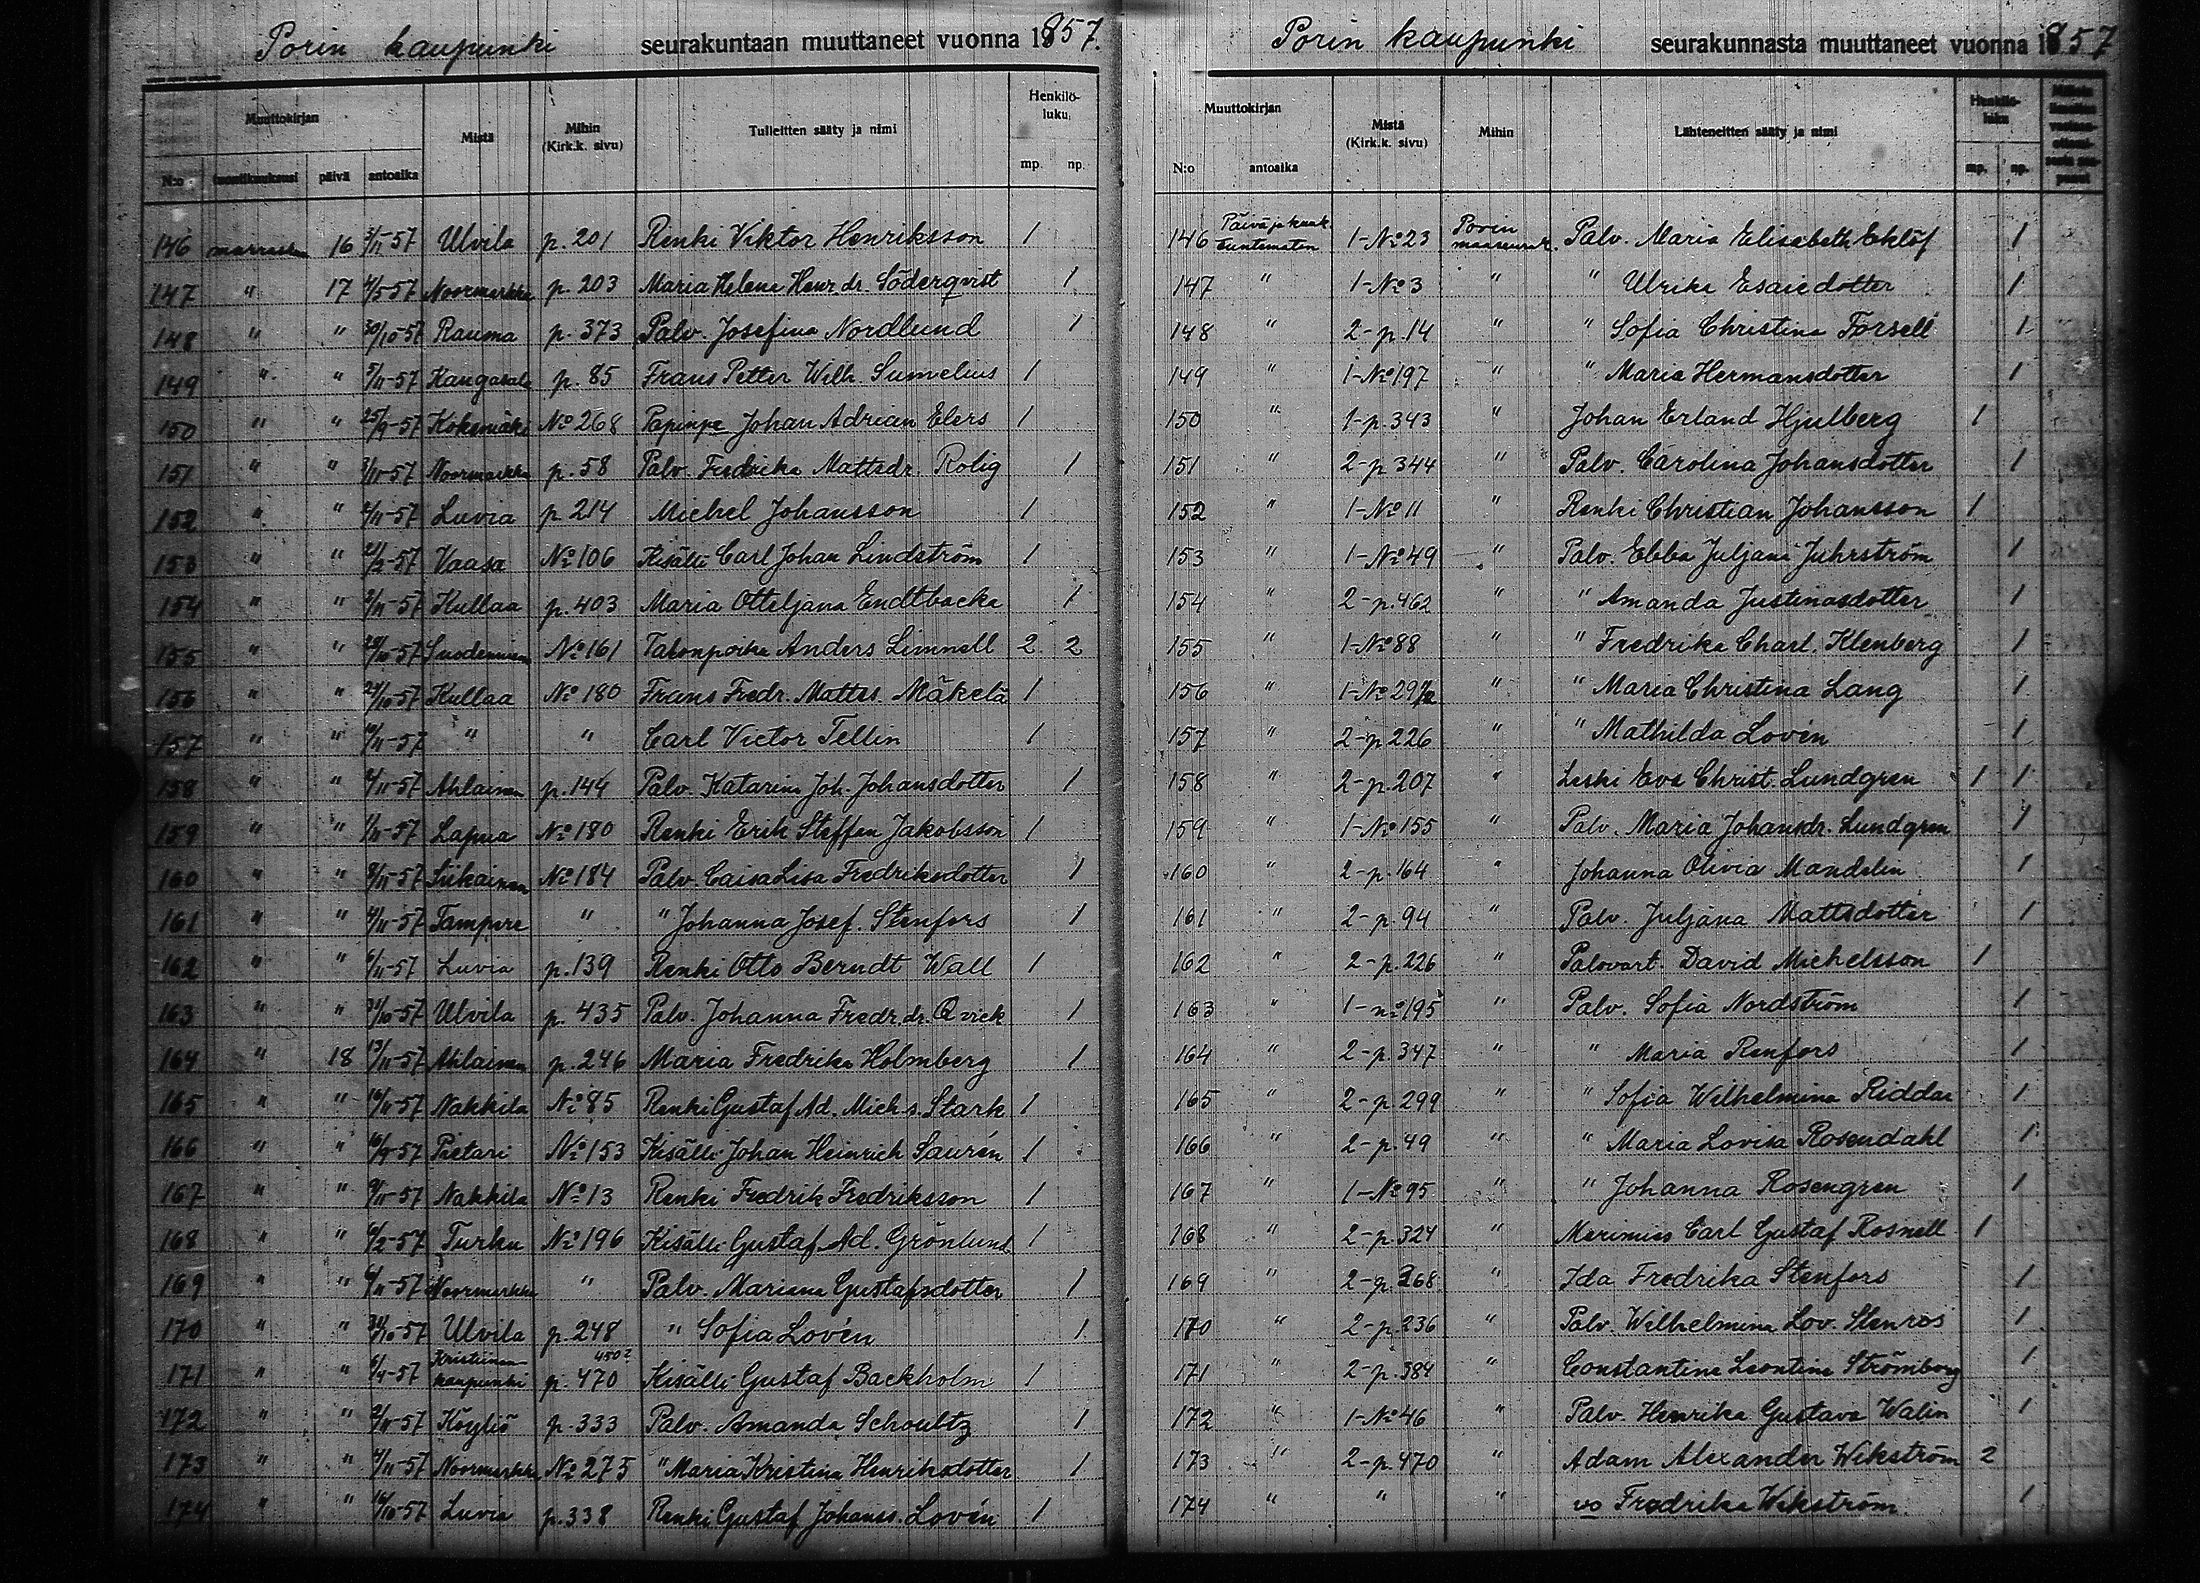 Porin kaupunki seurakuntaan muuttaneet vuonna 1857.
Muuttokirjan Mistä Mihin (Kirk.k. sivu) Tulleitten sääty ja nimi Henkilö-luku
N:o päivä antoaika mp. np.
146 marrask 16 3/11-57 Ulvila p. 201 Renki Viktor Henriksson 1
147 " 17 4/5 57 Noormarkku p. 203 Maria Helena Henr. dr. Söderqvist 1
148 " " 30/10-57 Rauma p. 373 Palv. Josefina Nordlund 1
149 " " 5/11-57 Kangasala p. 85 Frans Petter Wilh. Sumelius 1
150 " " 25/9-57 Kokemäki No 268 Papinpr Johan Adrian Elers 1
151 " " Noormarkku p. 58 Palv. Fredrika Mattsdr. Rolig 1
152 " " Luvia p. 214 Michel Johansson 1
153 " " Vaasa No 106 Kisälli Carl Johan Lindström 1
154 " " 2/11-57 Kullaa p. 403 Maria Otteljana Endtbacka 1
155 " " Suodenniemi No 161 Talonpoika Anders Limnell 2 2
156 " " 24/10-57 Kullaa No 180 Frans Fredr. Matts. Mäkelä 1
157 " " " " Carl Victor Tellin 1
158 " " Ahlainen p. 144 Palv. Katarina Joh. Johansdotter 1
159 " " Lapua No 180 Renki Erik Steffan Jakobsson 1
160 " " Siikainen No 184 Palv. Caisa Lisa Fredriksdotter 1
161 " " 4/11-57 Tampere " " Johanna Josef. Stenfors 1
162 " " 6/11-57 Luvia p. 139 Renki Otto Berndt Wall 1
163 " " Ulvila p. 435 Palv. Johanna Fredr. dr. Qvick 1
164 " 18 13/11-57 Ahlainen p. 246 Maria Fredrika Holmberg 1
165 " " Nakkila No 85 Renki Gustaf Ad. Mich s. Stark 1
166 " " Pietari No 153 Kisälli Johan Heinrich Saurén 1
167 " " Nakkila No 13 Renki Fredrik Fredriksson 1
168 " " Turku No 196 Kisälli Gustaf Ad. Grönlund 1
169 " " Noormarkku " Palv. Mariana Gustafsdotter 1
170 " " Ulvila p. 248 " Sofia Lovén 1
171 " " 6/4-57 Kristiinankaupunki p. 470 450? Kisälli Gustaf Backholm 1
172 " " Köyliö p. 333 Palv. Amanda Schoultz 1
173 " " Noormarkku No 275 " Maria Kristina Henriksdotter 1
174 " " Luvia p. 338 Renki Gustaf Johanss. Lovén 1
Porin kaupunki seurakunnasta muuttaneet vuonna 1857
Muuttokirjan Mistä (Kirk.k. sivu) Mihin Lähteneitten sääty ja nimi Henkilö-luku
N:o antoaika mp. np.
146 Päivä ja kuuk. tuntematon 1-No 23 Porin maaseurak. Palv. Maria Elisabeth Eklöf 1
147 " 1-No 3 " " Ulrika Esaiedotter 1
148 " 2-p. 14 " " Sofia Christina Forsell 1
149 " 1-No 197 " " Maria Hermansdotter 1
150 " 1-p. 343 " Johan Erland Hjulberg 1
151 " 2-p. 344 " Palv. Carolina Johansdotter 1
152 " 1-No 11 " Renki Christian Johansson 1
153 " 1-No 49 " Palv. Ebba Juljana Juhrström 1
154 " 2-p. 462 " " Amanda Justinasdotter 1
155 " 1-No 88 " " Fredrika Charl. Klenberg 1
156 " " " Maria Christina Lang 1
157 " 2-p. 226 " " Mathilda Lovén 1
158 " 2-p. 207 " Leski Eva Christ. Lundgren 1 1
159 " 1-No 155 " Palv. Maria Johansdr. Lundgren 1
160 " 2-p. 164 " Johanna Olivia Mandelin 1
161 " 2-p. 94 " Palv. Juljana Mattsdotter 1
162 " 2-p. 226 " Palovart. David Michelsson 1
163 " 1-no 195 " Palv. Sofia Nordström 1
164 " 2-p. 347 " " Maria Renfors 1
165 " 2-p. 299 " " Sofia Wilhelmina Riddar 1
166 " 2-p. 49 " " Maria Lovisa Rosendahl 1
167 " 1-No 95 " " Johanna Rosengren 1
168 " 2-p. 324 " Merimies Carl Gustaf Rosnell 1
169 " 2-p. 268 " Ida Fredrika Stenfors 1
170 " 2-p. 236 " Palv. Wilhelmina Lov. Stenros 1
171 " 2-p. 384 " Constantina Leontina Strömberg 1
172 " 1-No 46 " Palv. Henrika Gustava Walin 1
173 " 2-p. 470 " Adam Alexander Wikström 2
174 " " " vo Fredrika Wikström 1